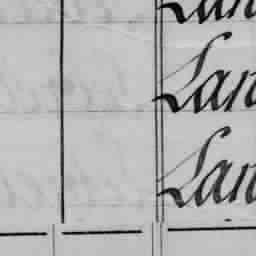 Lan
Lan
Lan